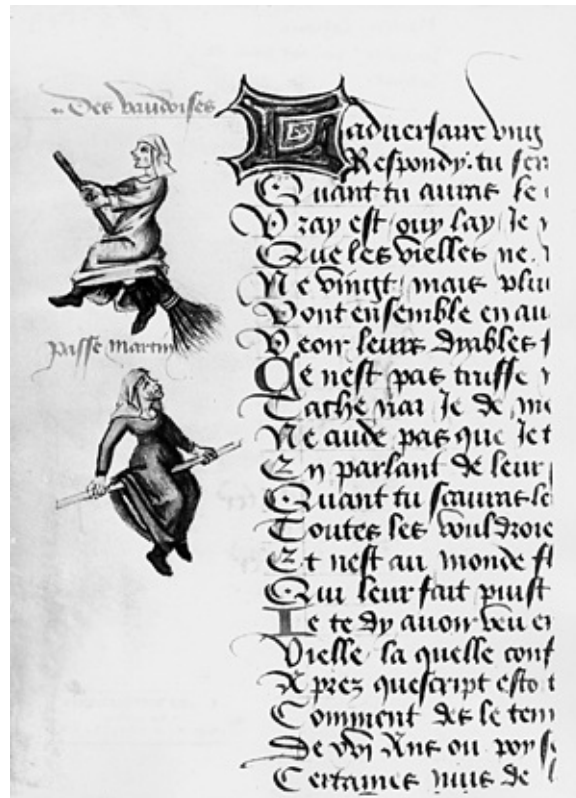 Des vaudoises
passe martin
aduersaire vng
Respondy. tu
Quant tu auras le
Vray est ouy lay Je
Que les vielles ne
Ne vingt mais plus
Vont ensemble en au
Veoir leurs dyables
Ce nest pas truffe
Je de me
Ne cuide pas que Je t
En parlant de leur
Quant tu scauras le
Toutes les vouldroie
Et nest au monde
Qui leur fait puist
Je te dy auoir veu en
Vielle la quelle conf
Aprez quescript esto
Comment des le tem
De xvi Ans ou poy
Certaines nuis de